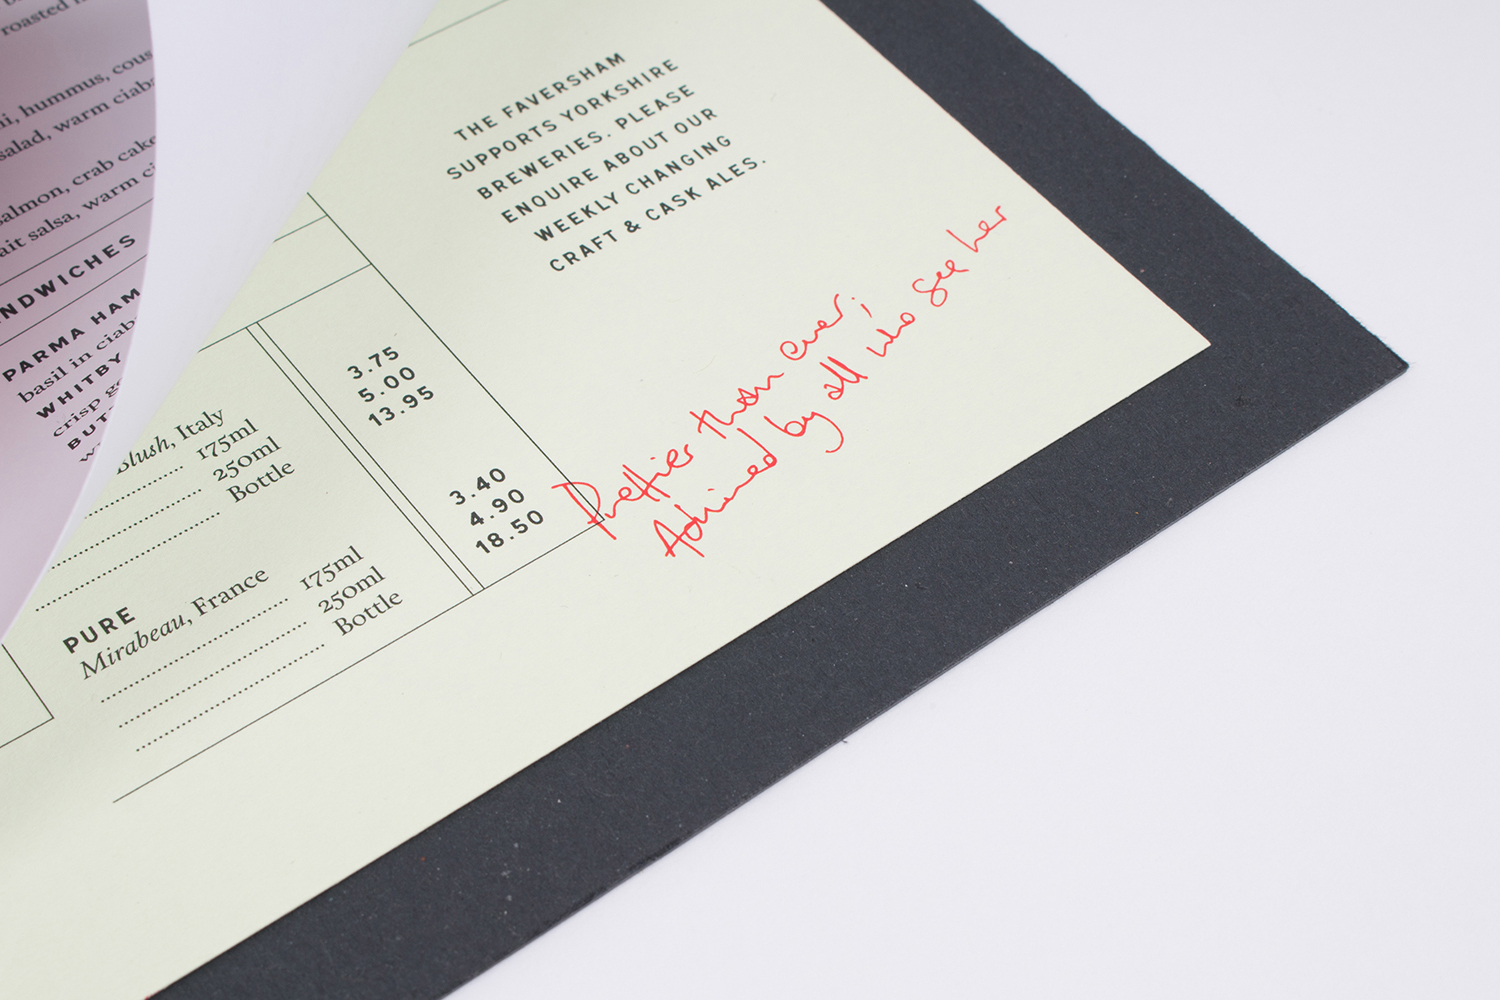 roasted
hummus, cous
salad, warm ciab
salmon, crab cake
salsa, warm
PARMA HAM
basil in ciab
WHITBY
crisp
THE FAVERSHAM
SUPPORTS YORKSHIRE
BREWERIES. PLEASE
ENQUIRE ABOUT OUR
WEEKLY CHANGING
CRAFT & CASK ALES.
Blush, Italy
175ml 3.75
250ml 5.00
Bottle 13.95
PURE
Mirabeau, France
175ml 3.40
250ml 4.90
Bottle 18.50
Prettier than ever,
Admired by all who see her